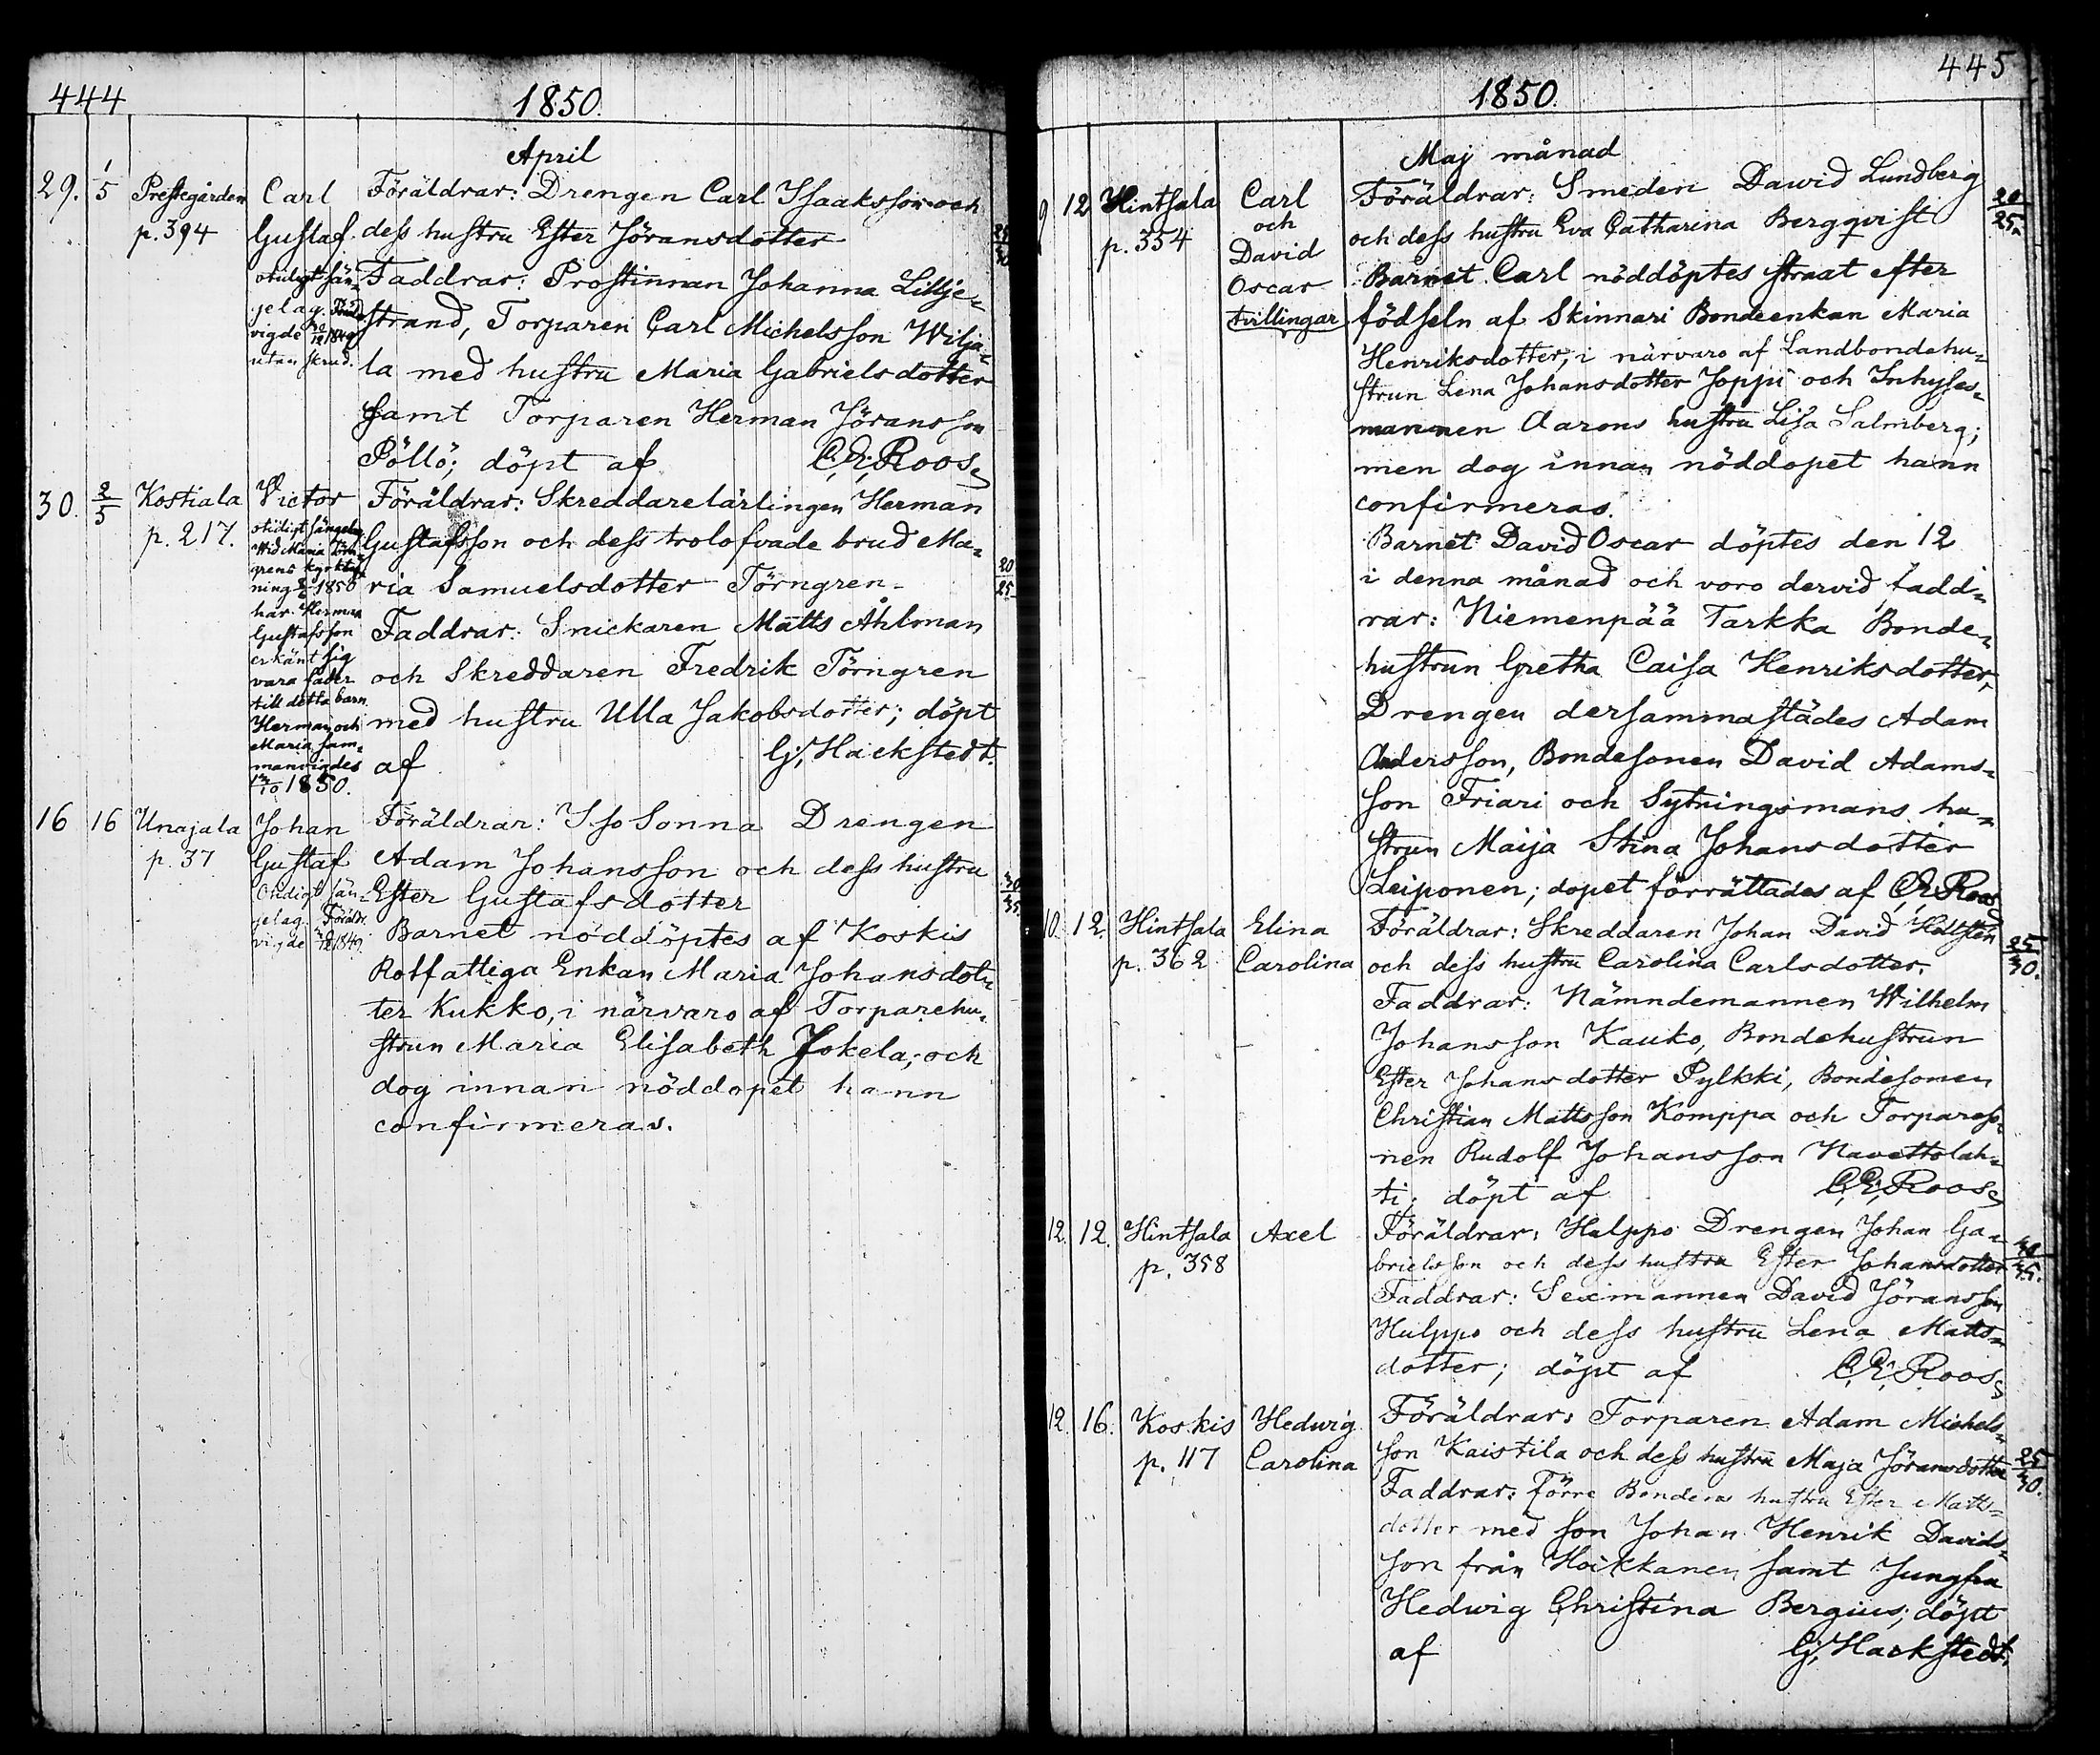 444
1850.
April
29. 1/5 Prestegården Carl Föräldrar: Drengen Carl Isaaksson och
p. 394 Gustaf dess hustru Ester Jöransdotter
otidigt sän- Faddrar: Prostinnan Johanna Lillje-
jelag. strand, Torparen Carl Michelsson Wilja-
vigde 1849
utan skrud. la med hustru Maria Gabrielsdotter
samt Torparen Herman Jöransson
Pöllö; döpt af C. E. Roos
30. 2/5 Kostiala Victor Föräldrar: Skreddarelärlingen Herman
p. 217. otidigt sängelag Gustafsson och dess trolofvade brud Ma-
Wid Maria Törn-
grens kyrktag-
ning 1850 ria Samuelsdotter Törngren 20/25
har Herman
Gustafsson Faddrar: Snickaren Matts Åhlman
erkänt sig
vara fader och Skreddaren Fredrik Törngren
till detta barn.
Herman och med hustru Ulla Jakobsdotter; döpt
Maria sam-
manvigdes af G. Hackstedt.
1850.
16 16 Unajala Johan Föräldrar: Iso Sonna Drengen
p. 37 Gustaf Adam Johansson och dess hustru
Otidigt sän- Ester Gustafsdotter
jelag. Föräldr. Barnet nöddöptes af Koskis
vigde 1849.
Rotfattiga Enkan Maria Johansdot-
ter Kukko, i närvaro af Torparehu-
strun Maria Elisabeth Jokela; och
dog innan nöddopet hann
confirmeras.
445
1850.
Maj månad
9 12 Hintsala Carl Föräldrar: Smeden Dawid Lundberg 20/25
p. 354 och och dess hustru Eva Catharina Bergqvist
David Barnet Carl nöddöptes straxt efter
Oscar
tvillingar födseln af Skinnari Bondeenkan Maria
Henriksdotter, i närvaro af Landbondehu-
strun Lena Johansdotter Joppi och Inhyses-
mannen Aarons hustru Lisa Salmberg;
men dog innan nöddopet hann
confirmeras.
Barnet David Oscar döptes den 12
i denna månad och voro dervid fadd-
rar: Niemenpää Tarkka Bonde-
hustrun Gretha Caisa Henriksdotter,
Drengen dersammastädes Adam
Andersson, Bondesonen David Adams-
son Friari och Sytningsmans hu-
strun Maija Stina Johansdotter
Leiponen; dopet förrättades af C. E. Roos
10. 12. Hintsala Elina Föräldrar: Skreddaren Johan David Hellsten 25/30.
p. 362 Carolina och dess hustru Carolina Carlsdotter.
Faddrar: Nämndemannen Wilhelm
Johansson Kauko, Bondehustrun
Ester Johansdotter Pylkki, Bondesonen
Christian Mattsson Komppa och Torpareso-
nen Rudolf Johansson Navettolah-
ti; döpt af C. E. Roos
12. 12. Hintsala Axel Föräldrar: Hulppo Drengen Johan Ga-
p. 358 brielsson och dess hustru Ester Johansdotter
Faddrar: Sexmannen David Jöransson
Hulppo och dess hustru Lena Matts-
dotter; döpt af C. E. Roos
12. 16. Koskis Hedwig Föräldrar: Torparen Adam Michels-
p. 117 Carolina son Kaistila och dess hustru Maja Jöransdotter 25/30.
Faddrar: Förre Bondens hustru Ester Matts-
dotter med son Johan Henrik Davids-
son från Hoikkanen samt Jungfru
Hedwig Christina Bergius; döpt
af G. Hackstedt.